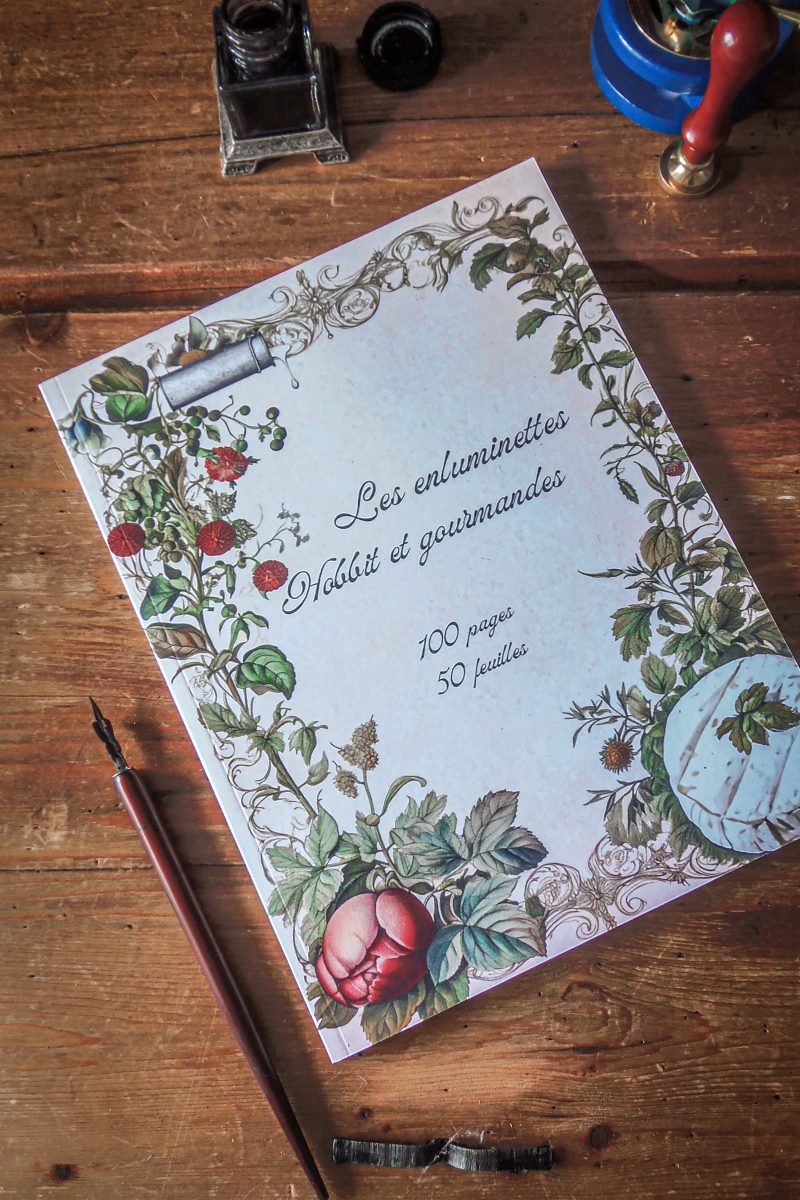 Les enluminettes
Hobbit et gourmandes
100 pages
50 feuilles